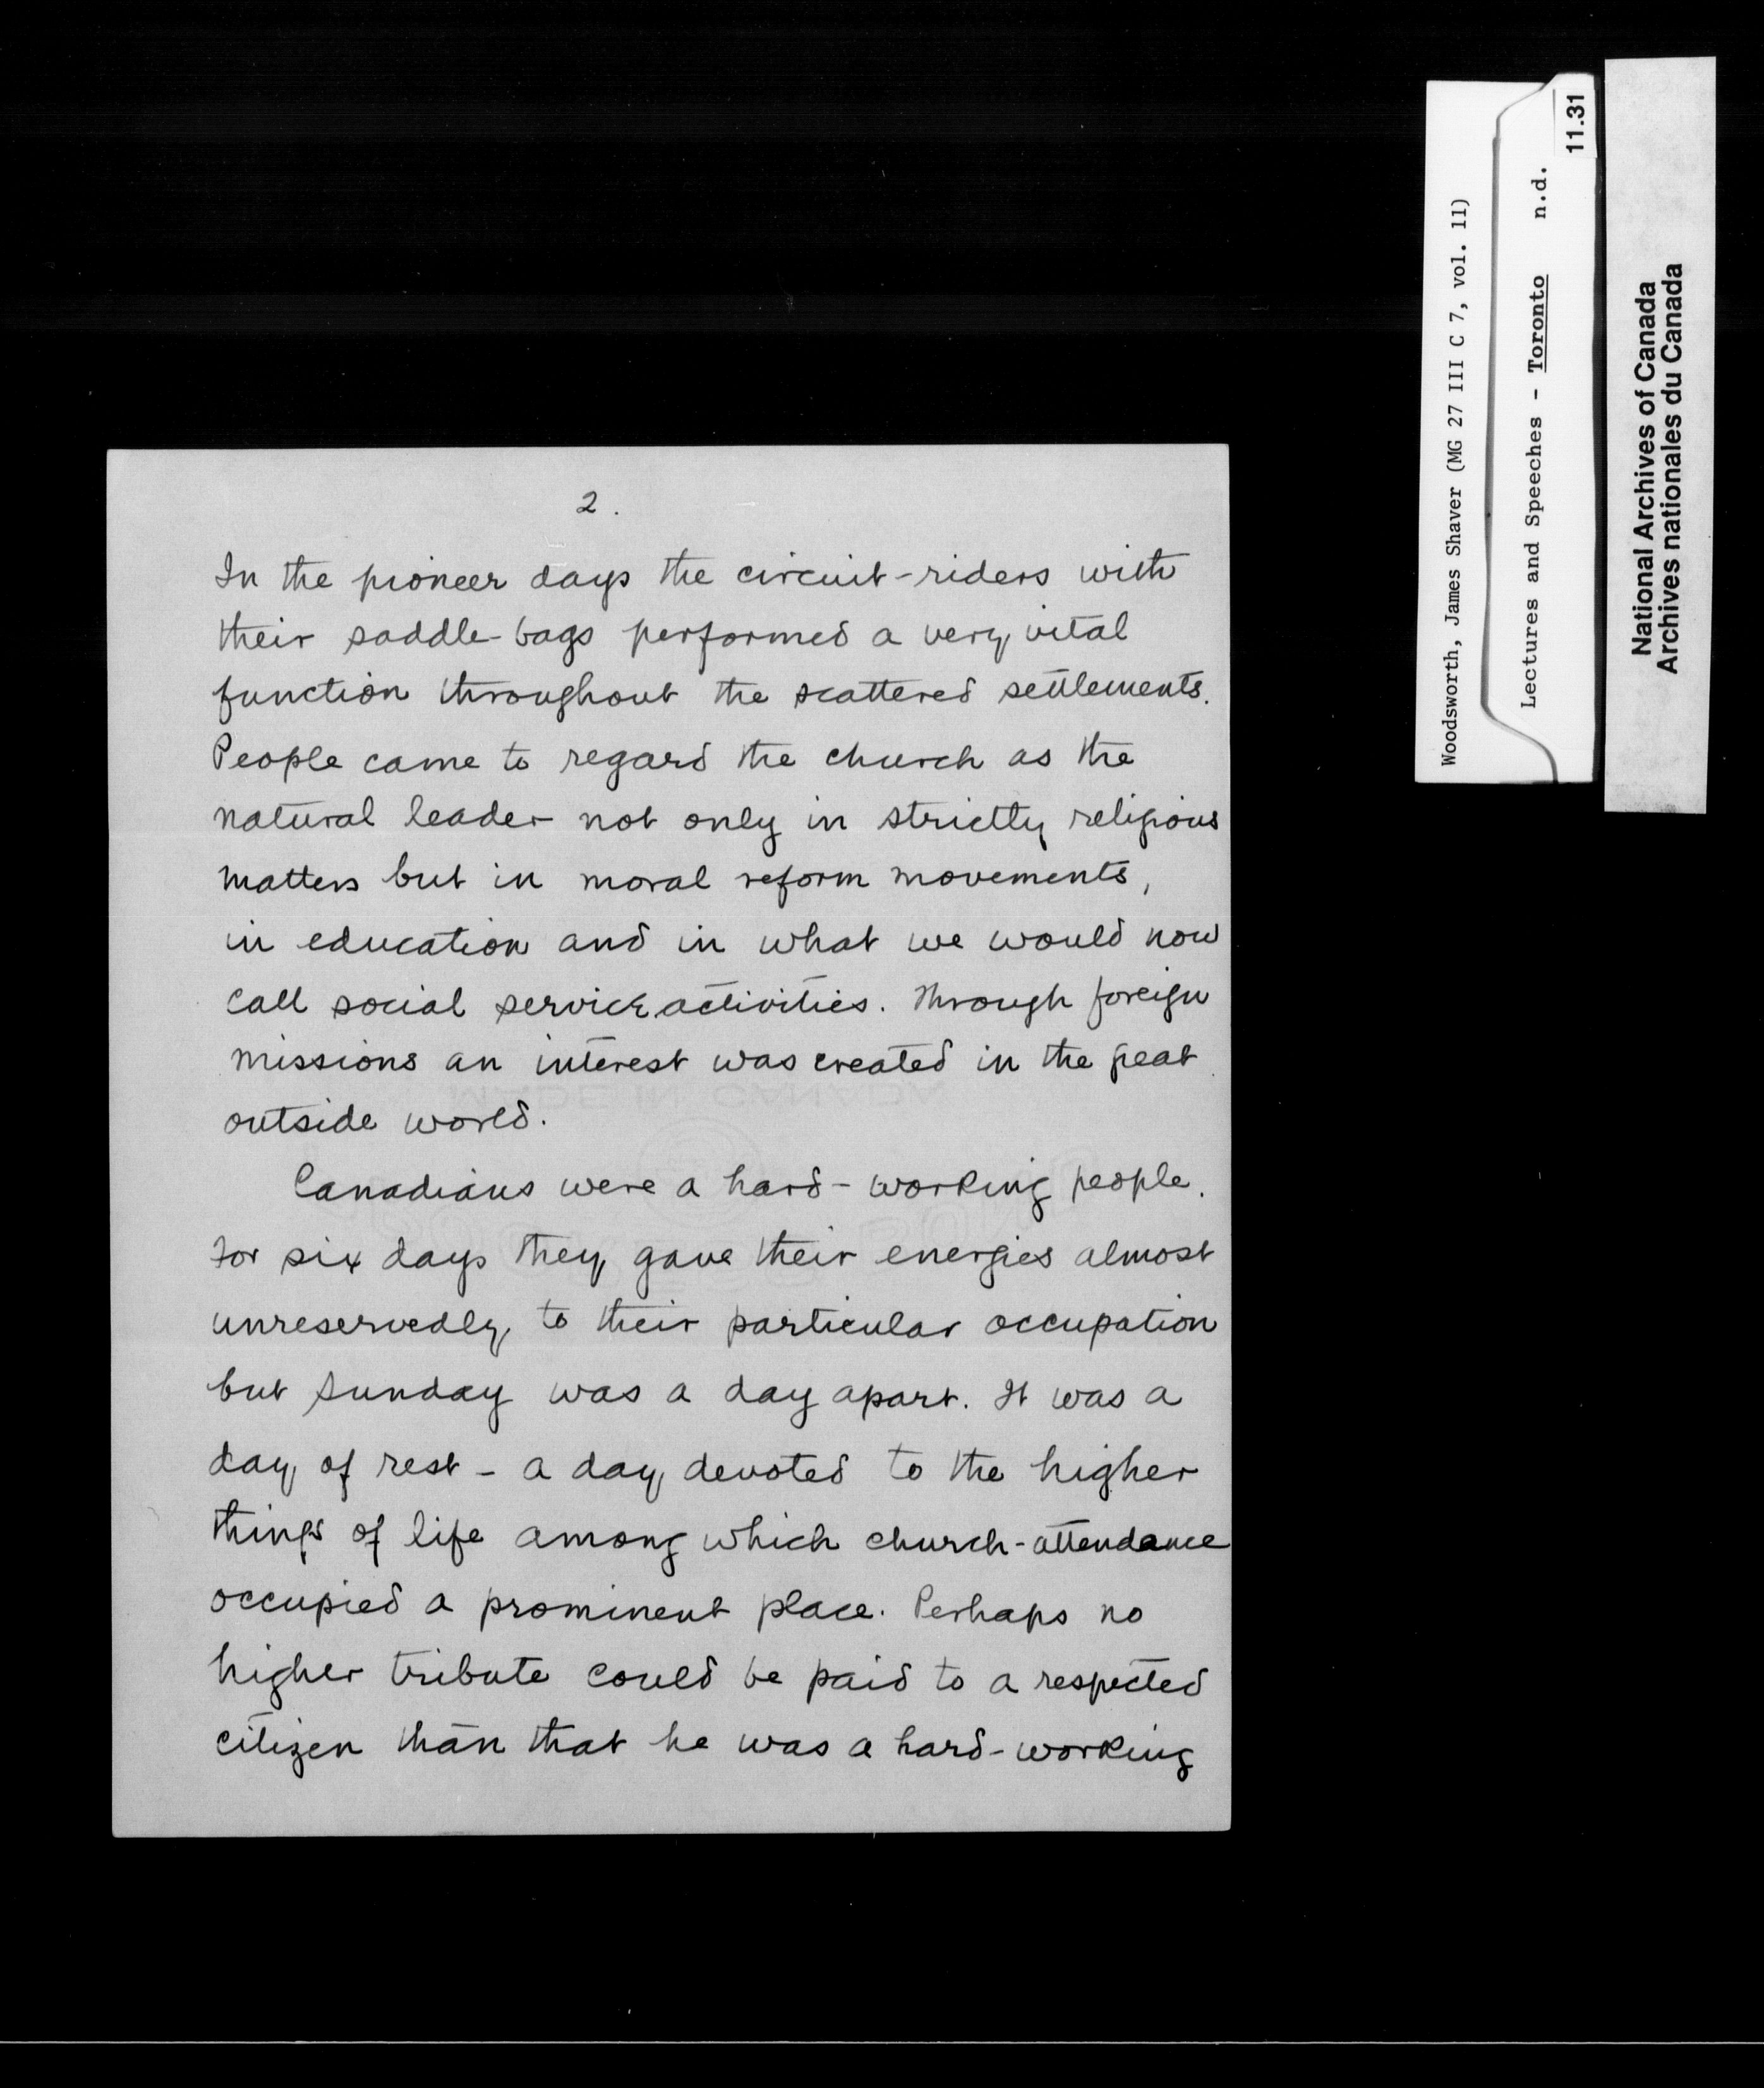 2.
In the pioneer days the circuit-riders with
their saddle-bags performed a very vital
function throughout the scattered settlements.
People came to regard the church as the
natural leader not only in strictly religious
matters but in moral reform movements,
in education and in what we would now
call social service activities. Through foreign
missions an interest was created in the great
outside world.
Canadians were a hard-working people.
For six days they gave their energies almost
unreservedly to their particular occupation
but Sunday was a day apart. It was a
day of rest - a day devoted to the higher
things of life among which church-attendance
occupied a prominent place. Perhaps no
higher tribute could be paid to a respected
citizen than that he was a hard-working
Woodsworth, James Shaver (MG 27 III C 7, vol. 11)
Lectures and Speeches - Toronto n.d.
11.31
National Archives of Canada
Archives nationales du Canada